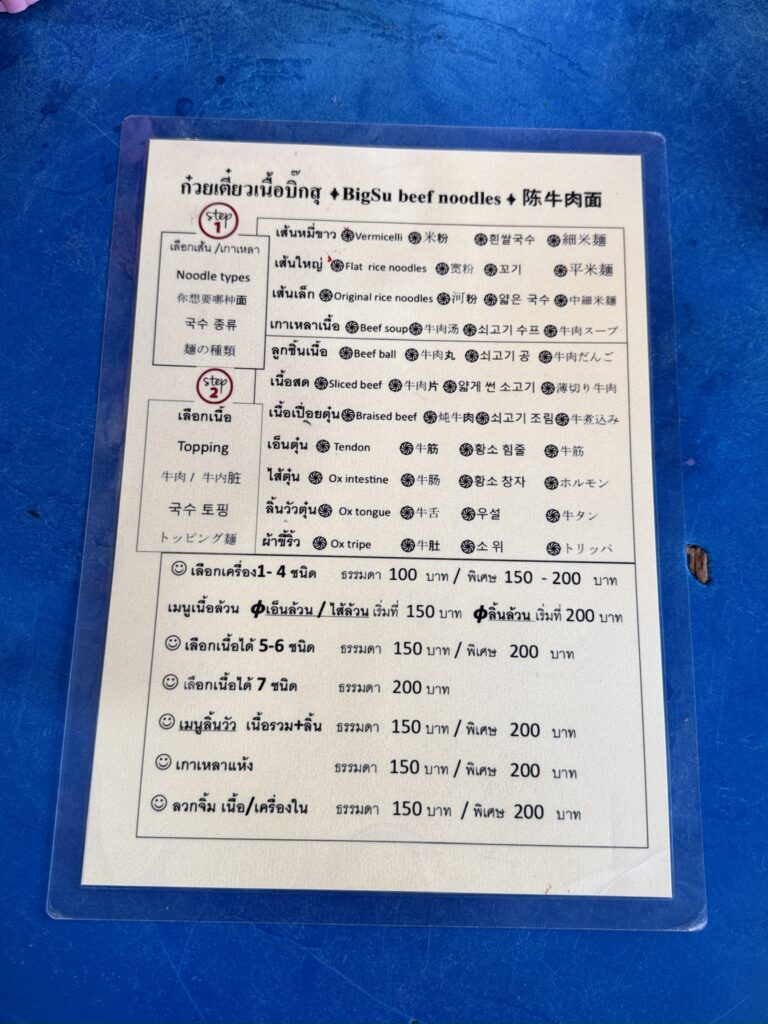 ก๋วยเตี๋ยวเนื้อบิ๊กสุ ♦BigSu beef noodles ♦ 陈牛肉面
step 1
เลือกเส้น /เกาเหลา
Noodle types
你想要哪种面
국수 종류
麺の種類
เส้นหมี่ขาว Vermicelli 米粉 흰쌀국수 細米麺
เส้นใหญ่ Flat rice noodles 宽粉 꼬기 平米麺
เส้นเล็ก Original rice noodles 河粉 얇은 국수 中細米麺
เกาเหลาเนื้อ Beef soup 牛肉汤 쇠고기 수프 牛肉スープ
step 2
เลือกเนื้อ
Topping
牛肉 / 牛内脏
국수 토핑
トッピング麺
ลูกชิ้นเนื้อ Beef ball 牛肉丸 쇠고기 공 牛肉だんご
เนื้อสด Sliced beef 牛肉片 얇게 썬 소고기 薄切り牛肉
เนื้อเปื่อยตุ๋น Braised beef 炖牛肉 쇠고기 조림 牛煮込み
เอ็นตุ๋น Tendon 牛筋 황소 힘줄 牛筋
ไส้ตุ๋น Ox intestine 牛肠 황소 창자 ホルモン
ลิ้นวัวตุ๋น Ox tongue 牛舌 우설 牛タン
ผ้าขี้ริ้ว Ox tripe 牛肚 소 위 トリッパ
☺ เลือกเครื่อง1- 4 ชนิด ธรรมดา 100 บาท / พิเศษ 150 - 200 บาท
เมนูเนื้อล้วน ϕเอ็นล้วน / ไส้ล้วน เริ่มที่ 150 บาท ϕลิ้นล้วน เริ่มที่ 200 บาท
☺ เลือกเนื้อได้ 5-6 ชนิด ธรรมดา 150 บาท / พิเศษ 200 บาท
☺ เลือกเนื้อได้ 7 ชนิด ธรรมดา 200 บาท
☺ เมนูลิ้นวัว เนื้อรวม+ลิ้น ธรรมดา 150 บาท / พิเศษ 200 บาท
☺ เกาเหลาแห้ง ธรรมดา 150 บาท / พิเศษ 200 บาท
☺ ลวกจิ้ม เนื้อ/เครื่องใน ธรรมดา 150 บาท / พิเศษ 200 บาท